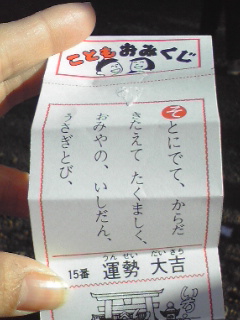 こどもおみくじ
そとにでて、からだ
きたえて たくましく、
おみやの、いしだん、
うさぎとび、
15番 運勢 大吉
うんせい だいきち